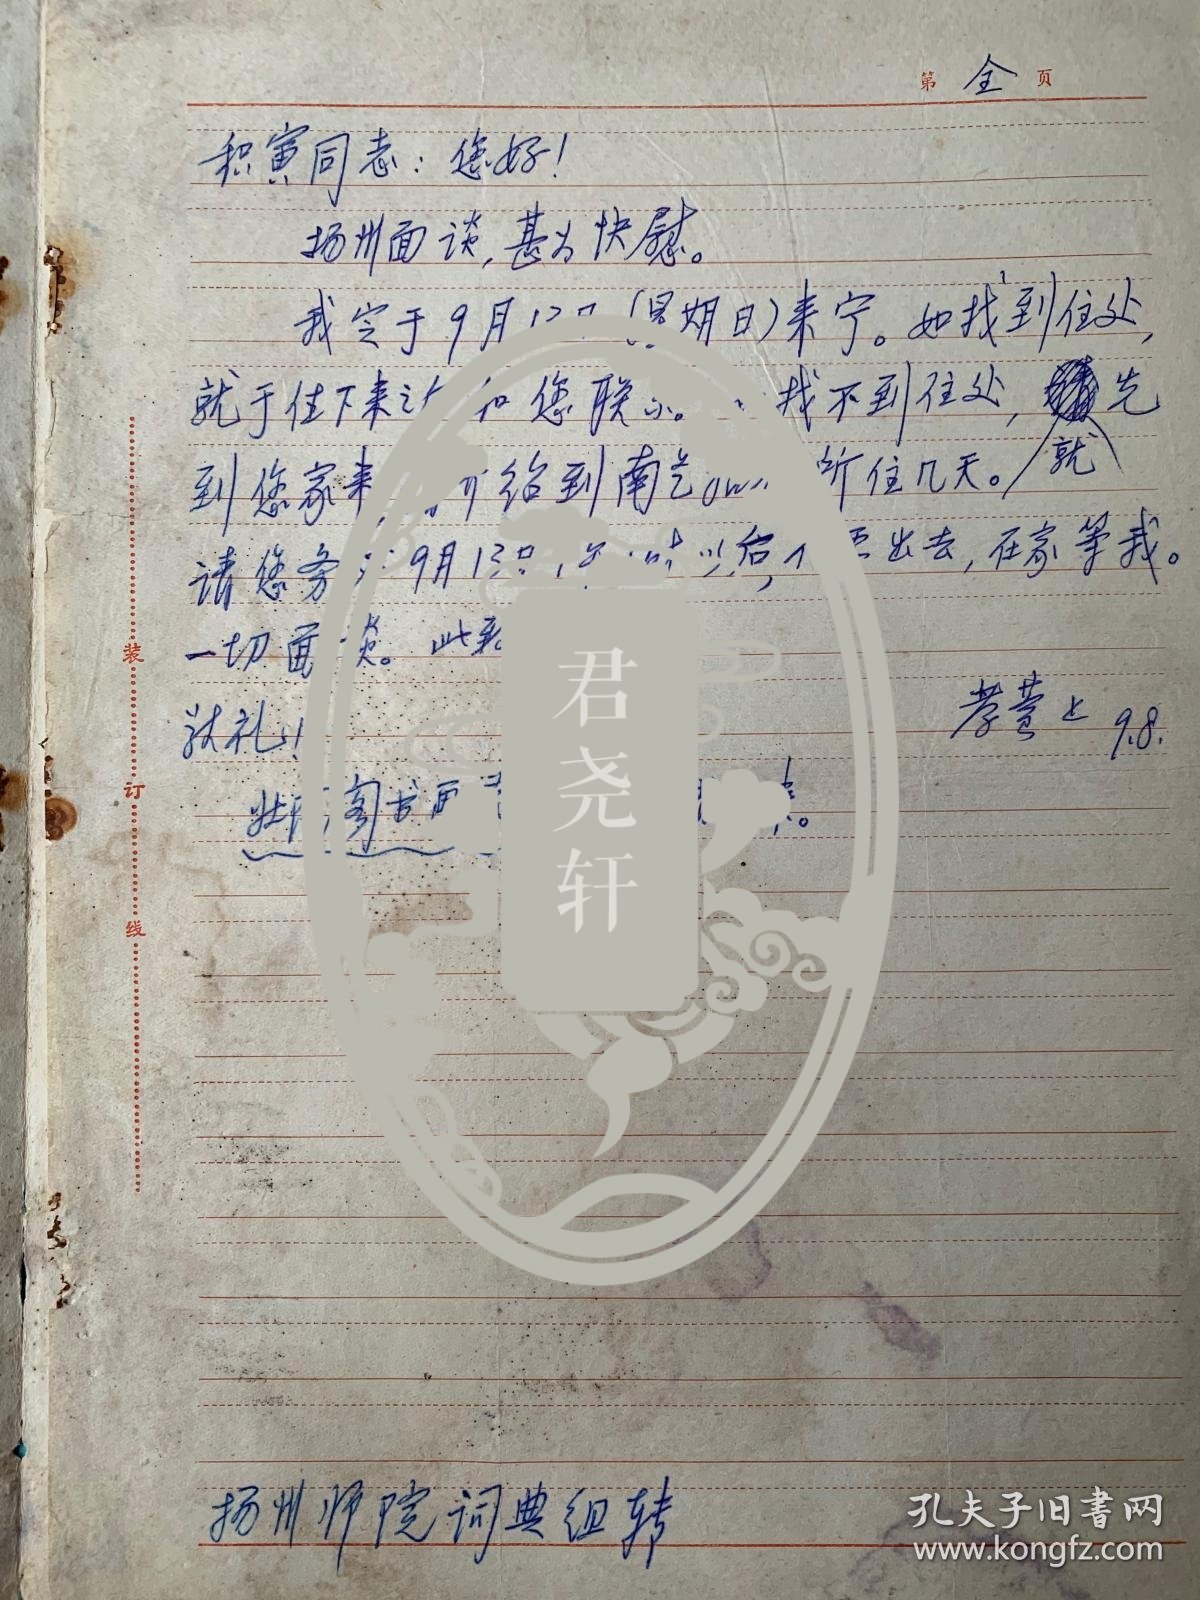 第 全 页
积寅同志：您好！
扬州面谈，甚为快慰。
我定于9月13日（星期日）来宁。如找到住处，
就于住下来 和您联 找不到住处， 先
到您家来 介绍到南艺 所住几天。就
请您务 9月13日 以后不要出去，在家等我。
一切面谈。此致
敬礼！
孝萱上 9.8.
阁书画
扬州师院词典组转
装
订
线
君尧轩
孔夫子旧书网
www.kongfz.com